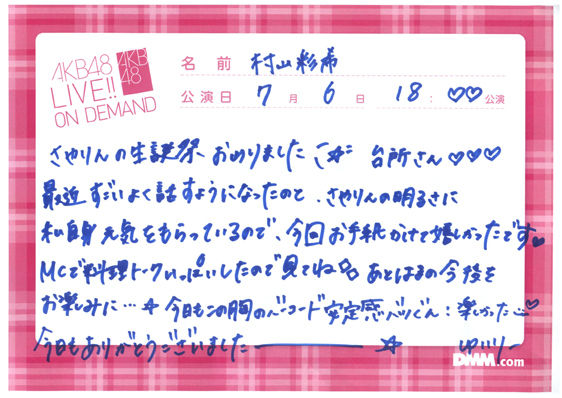 AKB48
LIVE!!
ON DEMAND
AKB
48
名前 村山彩希
公演日 7月 6日 18:♡♡公演
さやりんの生誕祭 おめりました 台所さん♡♡♡
最近すごいよく話すようになったのと、さやりんの明るさに
私自身元気をもらっているので、今回お手紙かけて嬉しかったです♥
MCで料理トークいっぱいしたので見てね あとはるの今後を
お楽しみに…☆ 今日もこの胸の 安定感 楽しかった♡
今日もありがとうございましたー ☆ ゆいりー
DMM.com